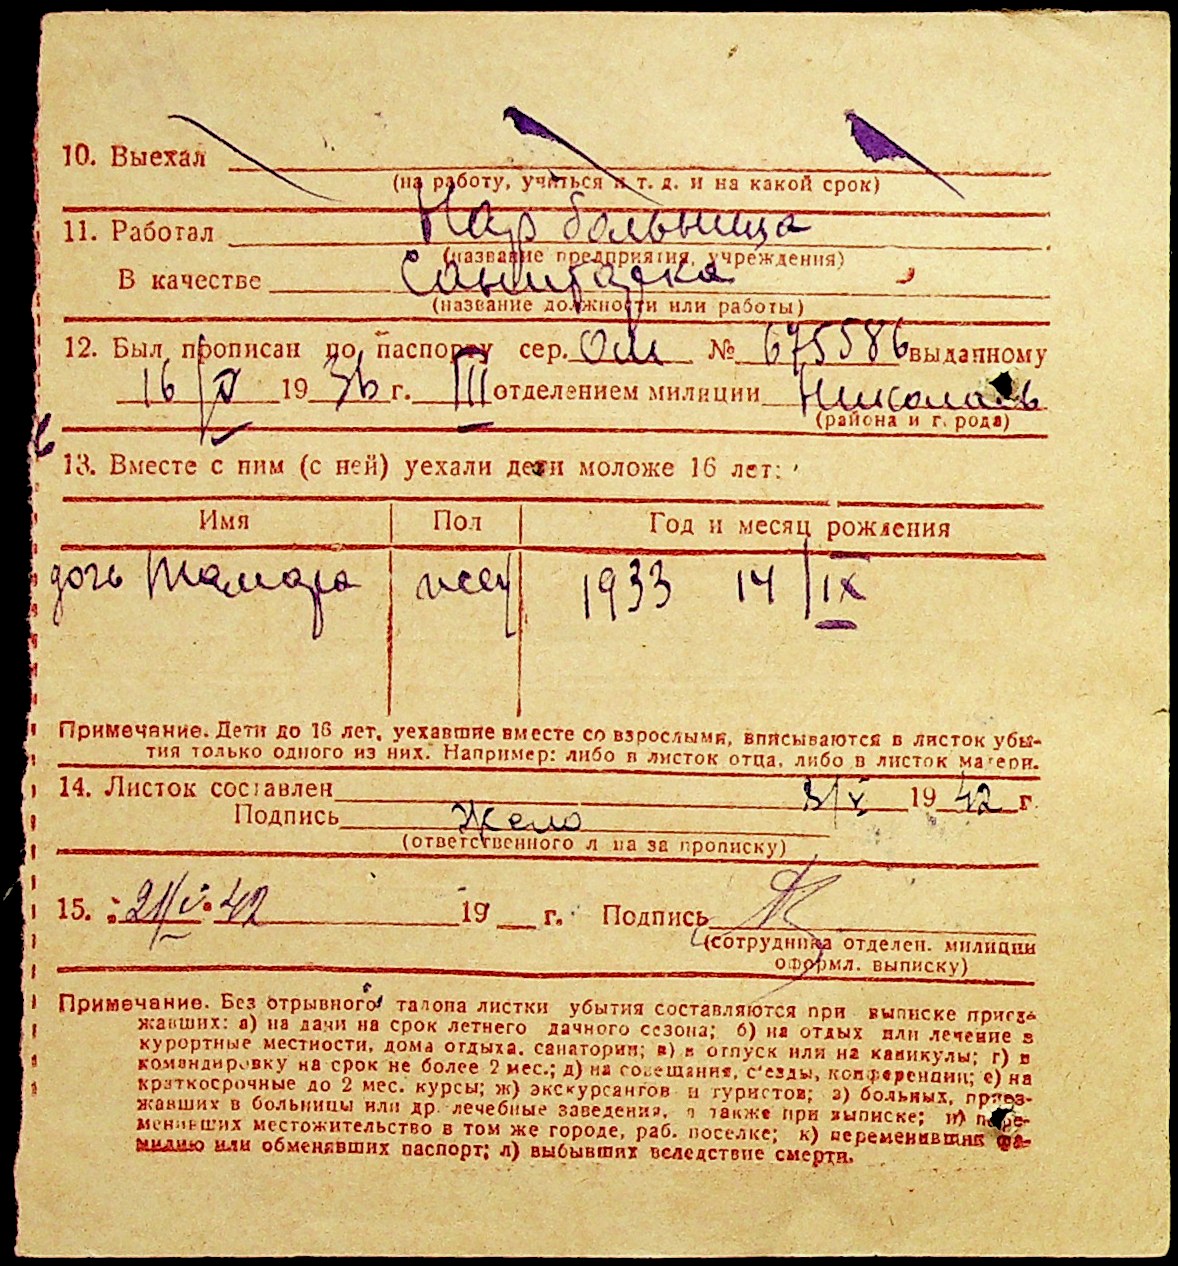 10. Выехал
(на работу, учиться и т. д. и на какой срок)
11. Работал Нар больница
(название предприятия, учреждения)
В качестве Санитарка
(название должности или работы)
12. Был прописан по паспорту сер. ОМ № 675586 выданному
16/V 1936 г. III отделением милиции Николаев
(района и города)
13. Вместе с ним (с ней) уехали дети моложе 16 лет:
Имя Пол Год и месяц рождения
дочь Тамара жен 1933 14/IX
Примечание. Дети до 16 лет, уехавшие вместе со взрослыми, вписываются в листок убы-
тия только одного из них. Например: либо в листок отца, либо в листок матери.
14. Листок составлен 3/V 1942 г.
Подпись
(ответственного лица за прописку)
15. 42 19 г. Подпись
(сотрудника отделен. милиции
оформл. выписку)
Примечание. Без отрывного талона листки убытия составляются при выписке приез-
жавших: а) на дачи на срок летнего дачного сезона; б) на отдых или лечение в
курортные местности, дома отдыха, санатории; в) в отпуск или на каникулы; г) в
командировку на срок не более 2 мес.; д) на совещания, съезды, конференции; е) на
краткосрочные до 2 мес. курсы; ж) экскурсантов и туристов; з) больных, приез-
жавших в больницы или др. лечебные заведения, а также при выписке; и) пере-
менивших местожительство в том же городе, раб. поселке; к) переменивших фа-
милию или обменявших паспорт; л) выбывших вследствие смерти.